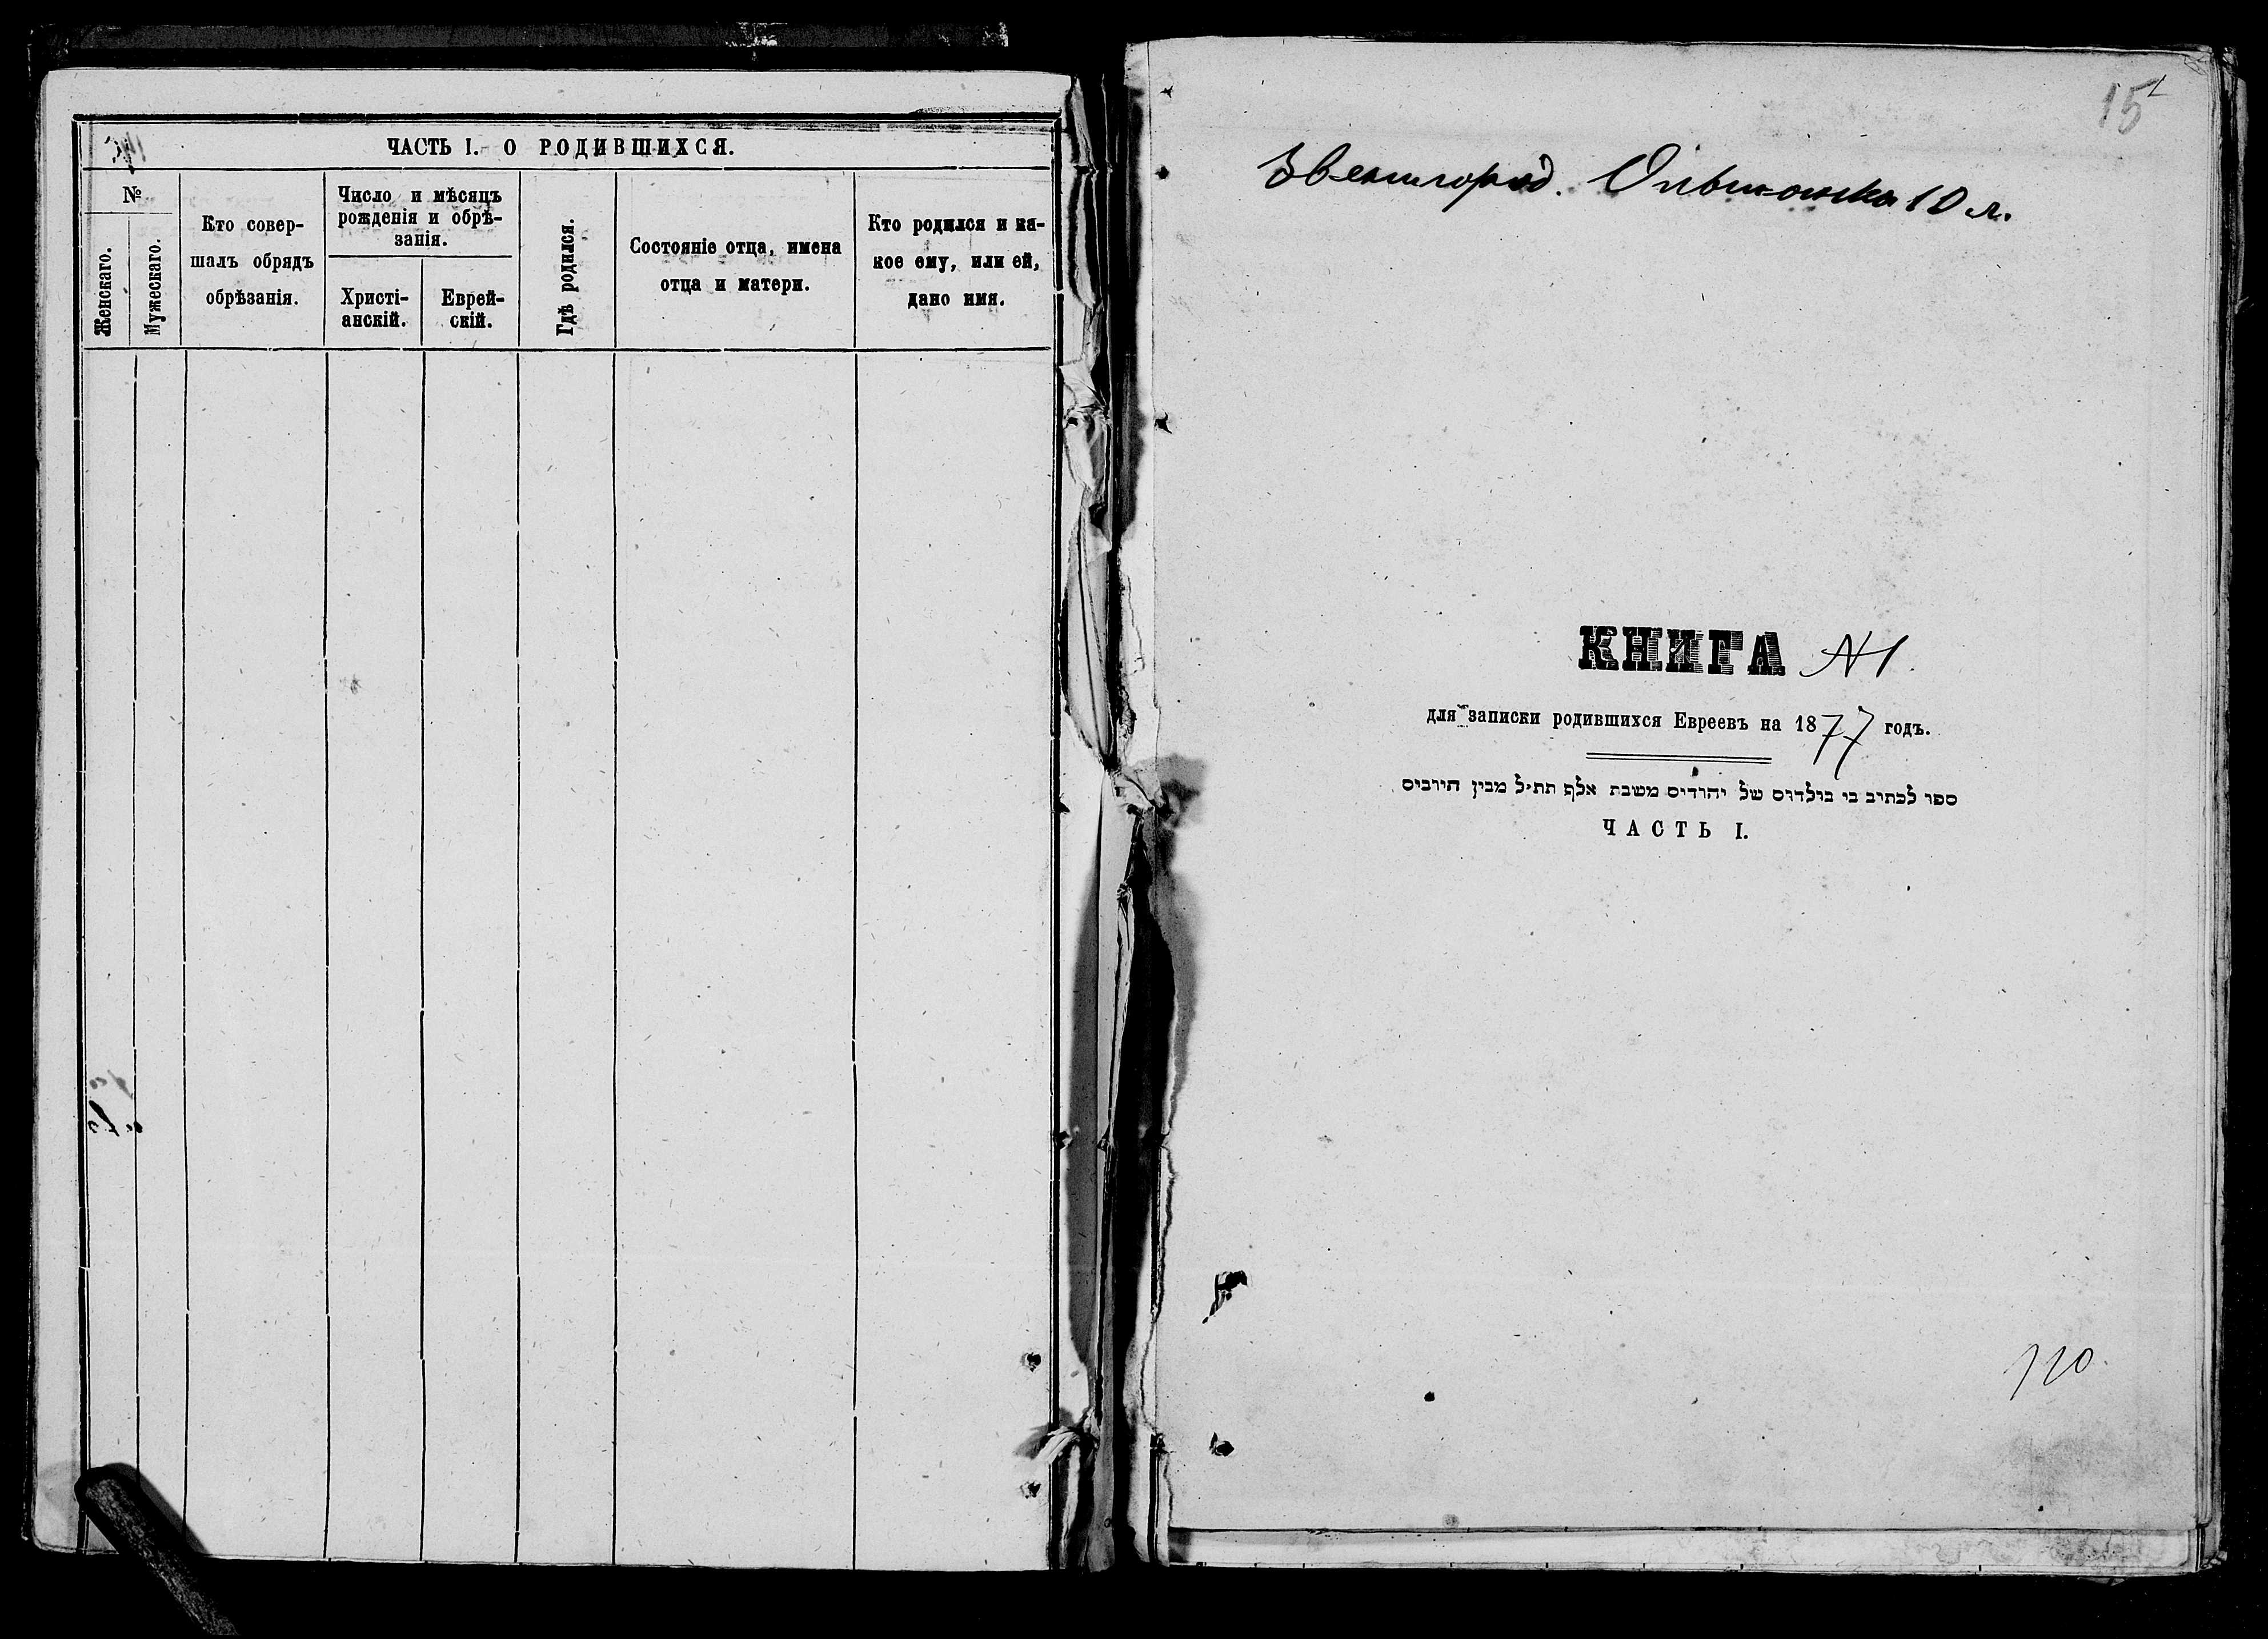 ЧАСТЬ I. О РОДИВШИХСЯ.
№
Женскаго.
Мужескаго.
Кто совер-
шалъ обрядъ
обрѣзанія.
Число и мѣсяцъ
рожденія и обрѣ-
занія.
Христі-
анскій.
Еврей-
скій.
Гдѣ родился.
Состояніе отца, имена
отца и матери.
Кто родился и ка-
кое ему, или ей,
дано имя.
15
Звенигород. Ольшанка 10 л.
КНИГА №1
для записки родившихся Евреевъ на 1877 годъ.
ספר לכתיב בי בולדוס של יהודיס משבת אלף תת״ל מבין היוביס
ЧАСТЬ I.
110